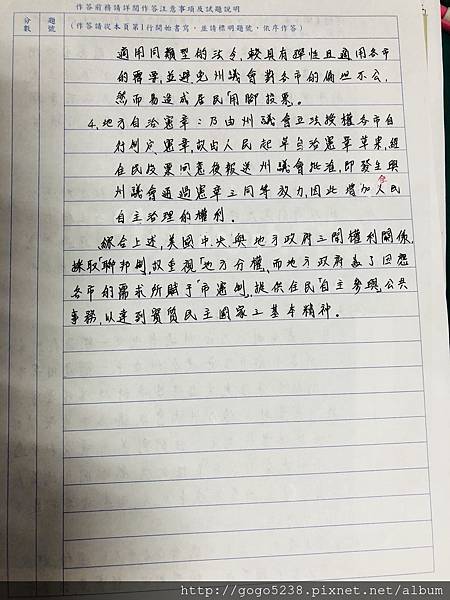 作答前務請詳閱作答注意事項及試題說明
分數
題號
(作答請從本頁第1行開始書寫,並請標明題號,依序作答)
適用同類型的法令,較具有彈性且適用各市
的需要,並避免州議會對各市的偏袒不公,
然而易造成居民「用腳投票」。
4.地方自治憲章:乃由州議會立法授權各市自
行制定憲章,故由人民起草自治憲章草案,經
住民投票同意後報送州議會批准,即發生與
州議會通過憲章之同等效力,因此增加人民
自主治理的權利。
綜合上述,美國中央與地方政府之間權利關係,
採取「聯邦制」,故重視「地方分權」,而地方政府為了因應
各市的需求所賦予「市憲制」,提供住民「自主參與」公共
事務,以達到實質民主國家之基本精神。
http://gogo5238.pixnet.net/album